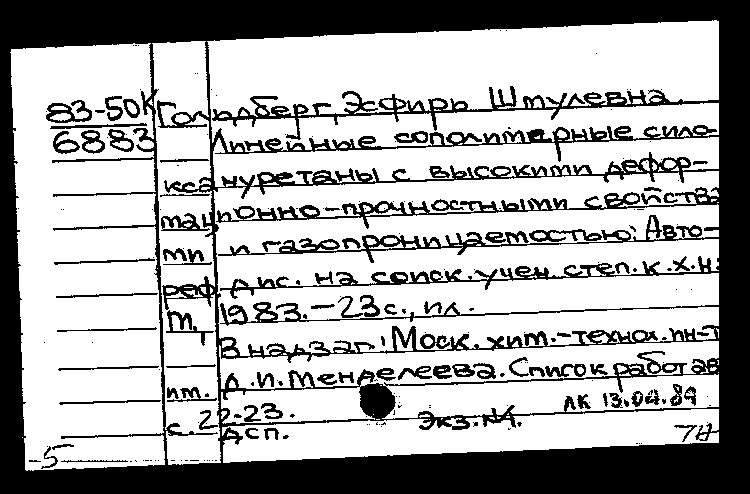 83-50к Гольдберг, Эсфирь Шмулевна.
6883 Линейные сополимерные сило-
ксануретаны с высокими дефор-
мационно-прочностными свойства
ми и газопроницаемостью: Авто-
реф. дис. на соиск. учен. степ. к.х.н.
М., 1983. - 23 с., ил.
В надзаг.: Моск. хим.-технол. ин-т
им. Д.И. Менделеева. Список работ ав
с. 22-23. АК 13.04.84
ДСП. Экз. №1.
5 7Н